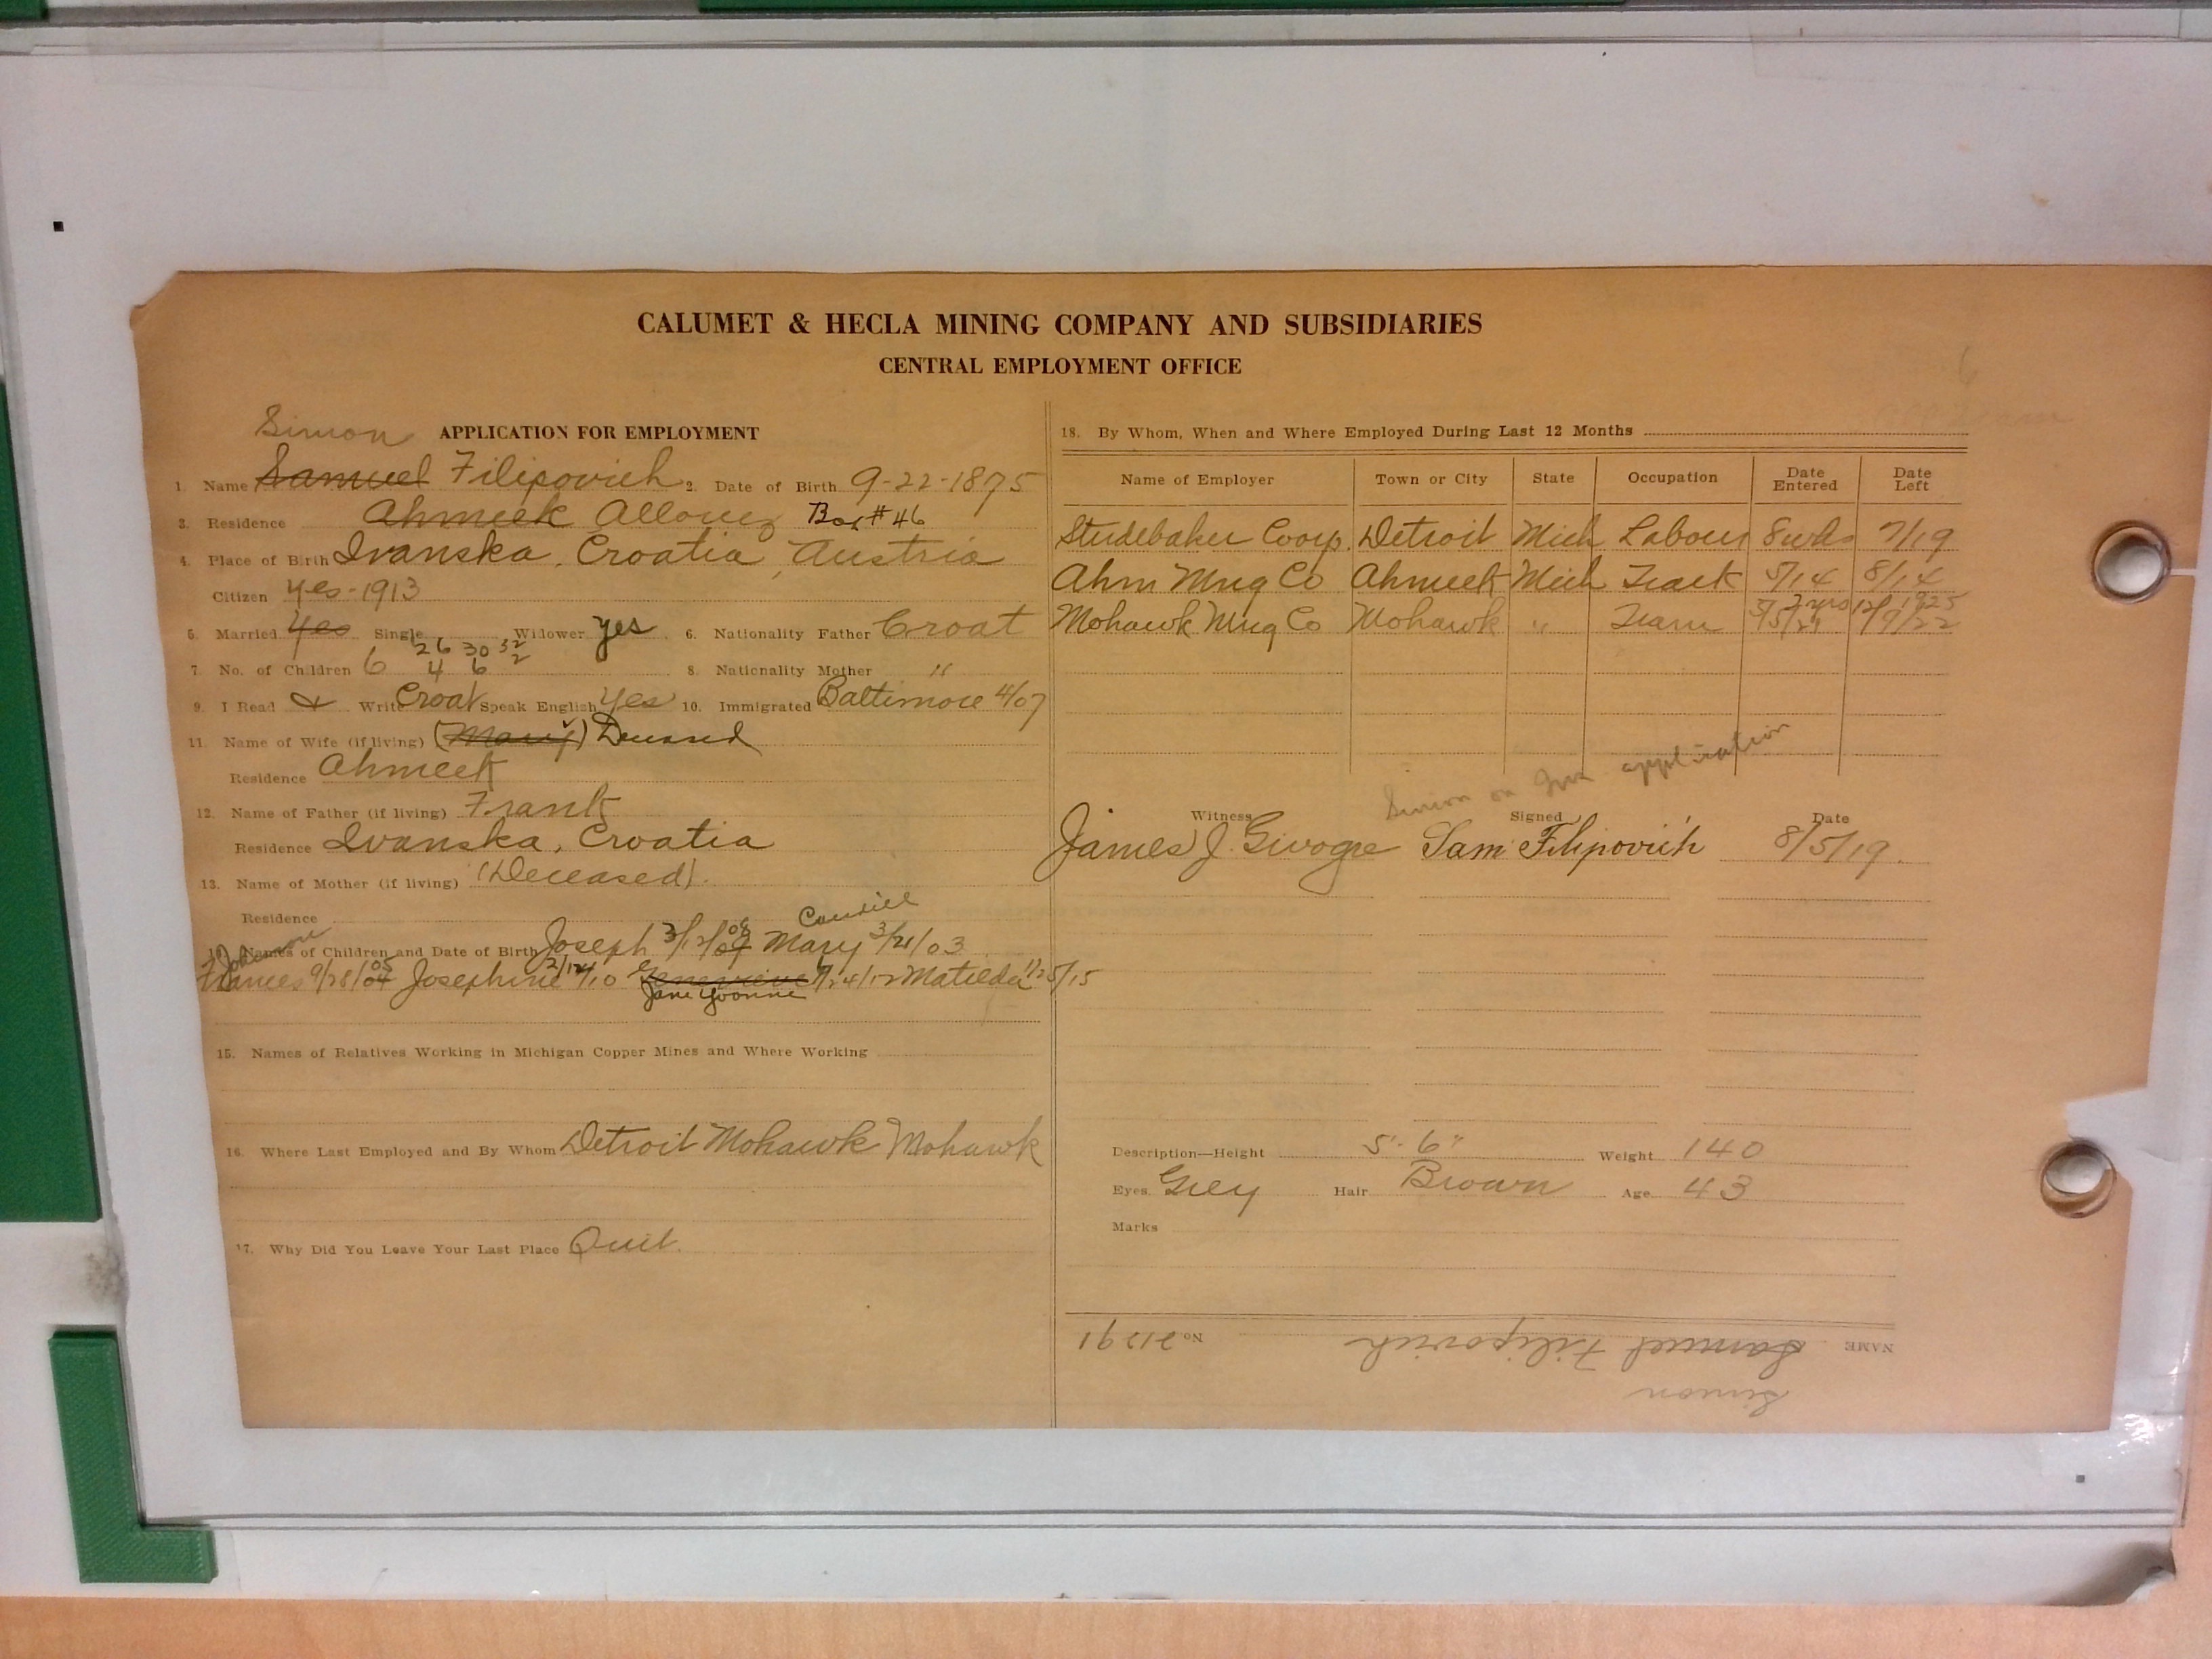 CALUMET & HECLA MINING COMPANY AND SUBSIDIARIES
CENTRAL EMPLOYMENT OFFICE
Simon
APPLICATION FOR EMPLOYMENT
1. Name Samuel Filipovich 2. Date of Birth 9-22-1875
3. Residence Ahmeek Allouez Box #46
4. Place of Birth Ivanska, Croatia, Austria
Citizen Yes-1913
5. Married Yes Single Widower yes 6. Nationality Father Croat
26 30 32
7. No. of Children 6 4 6 2 8. Nationality Mother "
9. I Read & Write Croat Speak English Yes 10. Immigrated Baltimore 4/07
11. Name of Wife (if living) (Mary) Deceased
Residence Ahmeek
12. Name of Father (if living) Frank
Residence Ivanska, Croatia
13. Name of Mother (if living) (Deceased).
Residence
Names of Children and Date of Birth Joseph 3/12/08 Mary 3/21/03
Frances 9/28/05 Josephine Genevieve Matilda
Jane Yvonne
15. Names of Relatives Working in Michigan Copper Mines and Where Working
16. Where Last Employed and By Whom Detroit Mohawk Mohawk
17. Why Did You Leave Your Last Place Quit.
18. By Whom, When and Where Employed During Last 12 Months
Name of Employer Town or City State Occupation Date Entered Date Left
Studebaker Coorp. Detroit Mich Labour 8 wks 7/19
Ahm Mng Co Ahmeek Mich 5/14 8/14
2 yrs 1925
Mohawk Mng Co Mohawk " Tram
Simon on application
Witness Signed Date
James J. Sam Filipovich 8/5/19.
Description—Height 5'. 6" Weight 140
Eyes Grey Hair Brown Age 43
Marks
NAME Samuel Filipovich No 21291
Simon